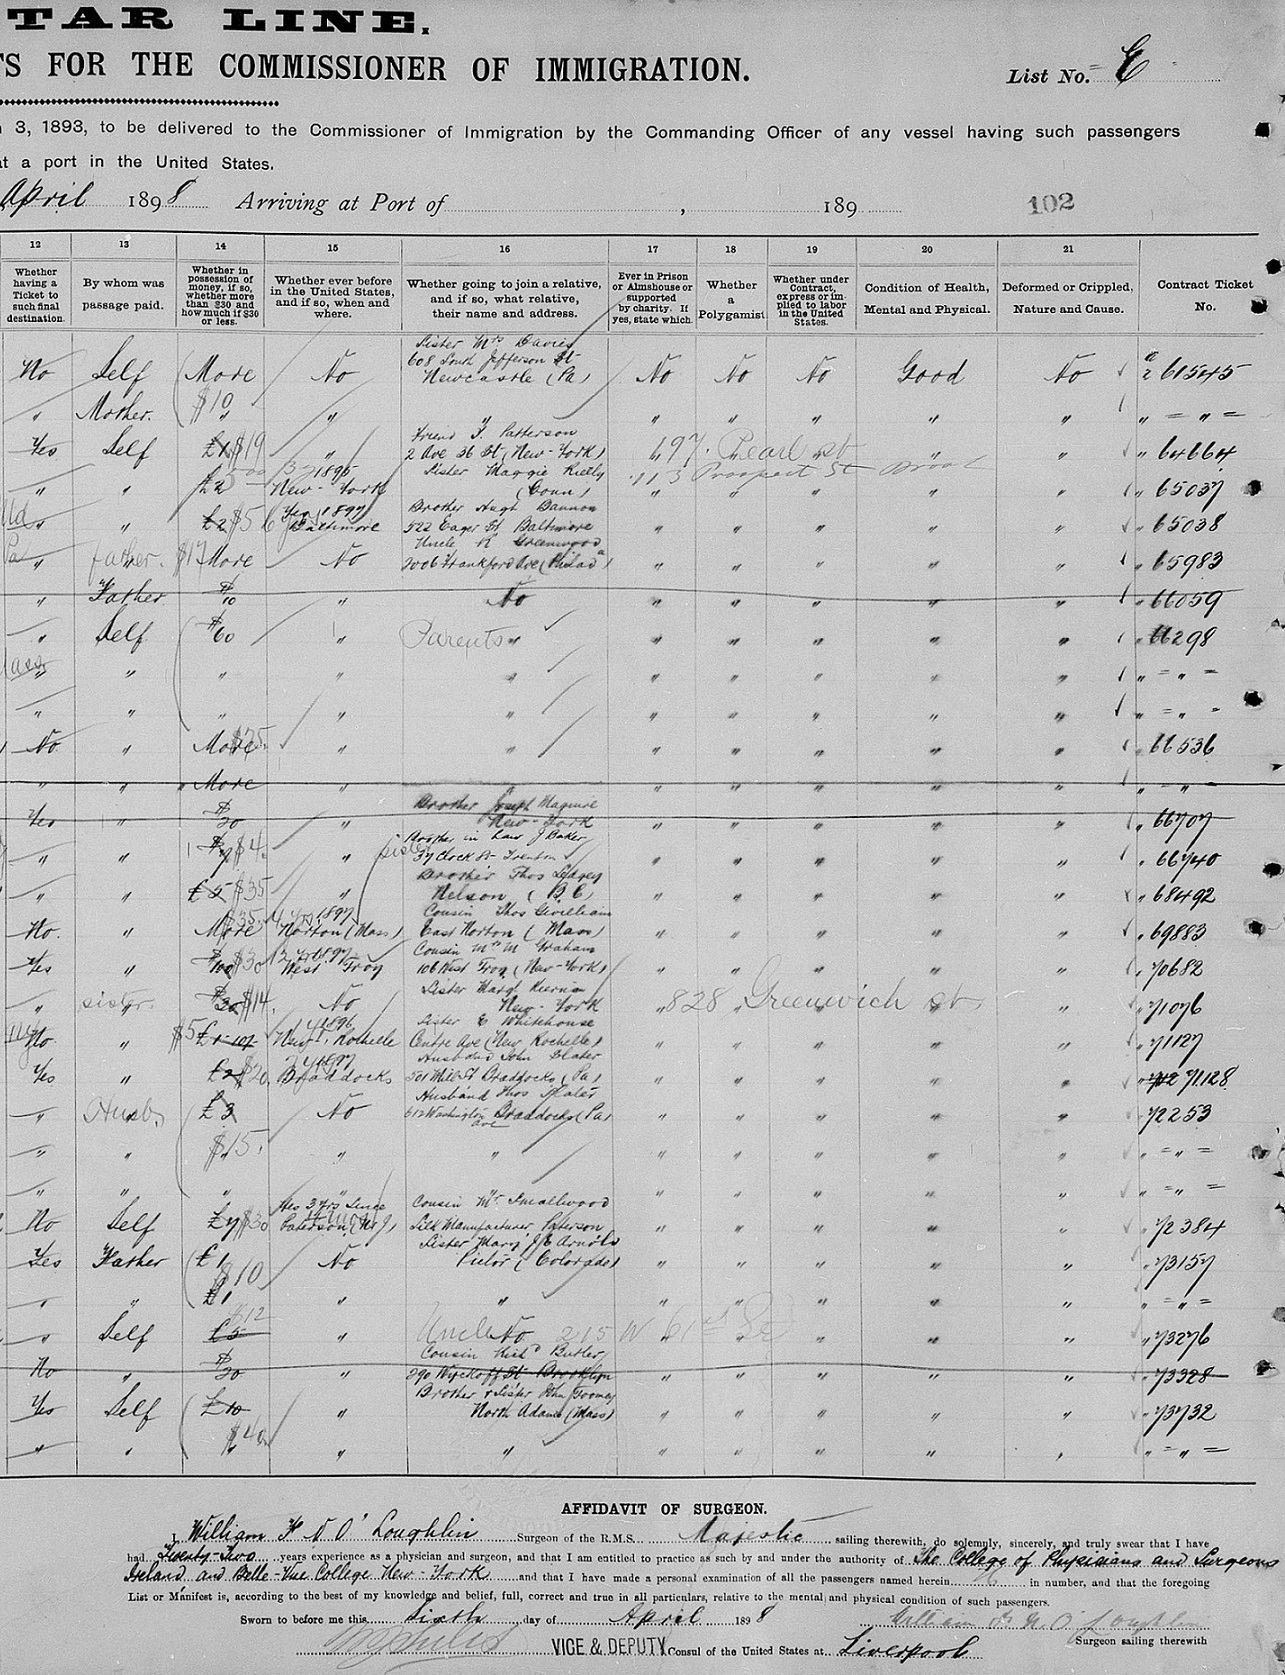 TAR LINE.
TS FOR THE COMMISSIONER OF IMMIGRATION.
List No. E
3, 1893, to be delivered to the Commissioner of Immigration by the Commanding Officer of any vessel having such passengers
at a port in the United States.
April 1898 Arriving at Port of , 189 102
12 13 14 15 16 17 18 19 20 21
Whether having a Ticket to such final destination.
By whom was passage paid.
Whether in possession of money, if so, whether more than $30 and how much if $30 or less.
Whether ever before in the United States, and if so, when and where.
Whether going to join a relative, and if so, what relative, their name and address.
Ever in Prison or Almshouse or supported by charity. If yes, state which.
Whether a Polygamist.
Whether under Contract, express or implied to labor in the United States.
Condition of Health, Mental and Physical.
Deformed or Crippled, Nature and Cause.
Contract Ticket No.
Sister Mrs Davies
608 South Jefferson St
No Self More No Newcastle (Pa) No No No Good No 61545
Mother. $10 " " " " " " " " = " =
Friend J. Patterson
Yes Self $19 " 2 Ave 36 St (New-York) 197 Pearl St " 64664
1895 Sister Maggie Rielly 113 Prospect St
" " £2 New-York (Conn) " " " " " " 65037
1897 Brother Hugh Bannon
" " £2 $5 Baltimore 522 Eager St Baltimore " " " " " " 65038
Uncle R Greenwood
" father. $17 More No 2006 Frankford Ave (Philada) " " " " " " 65983
" Father $10 " No " " " " " " 66059
" Self $60 " Parents " " " " " " " 66298
" " " " " " " " " " " = " =
" " " " " " " " " " " = " =
No " More $35 " " " " " " " " 66536
" " " More " " " " " " " = " =
Brother Joseph Maguire
Yes " $20 " New-York " " " " " " 66707
Brother in Law J Baker
" " $4 " sister 37 Clock St Trenton " " " " " " 66740
Brother Thos Lidgey
" " £5 $35 " Nelson (B.C) " " " " " " 68492
1897 Cousin Thos Gwilliam
No. " More $35 Norton (Mass) East Norton (Mass) " " " " " " 69883
1897 Cousin Mrs M Graham
Yes " $100 $30 West Troy 106 West Troy (New-York) " " " " " " 70682
Sister Margt Kiernan
" sister $30 $14 No New-York 828 Greenwich St " 71076
1896 Sister E Whitehouse
No. " $5 New Rochelle Centre Ave (New Rochelle) " " " " " " 71127
1897 Husband John Slater
Yes " $20 Braddocks 501 Mill St Braddocks (Pa) " " " " " " 71128
Husband Thos Slater
" Husb. £3 No 612 Washington Ave Braddocks (Pa) " " " " " " 72253
" " $15 " " " " " " " " = " =
" " " " " " " " " " = " =
Yes 3 yrs Since Cousin Mr Smallwood
No Self $30 Paterson (N.J) Silk Manufacturer, Paterson " " " " " " 72384
Sister Mary J E Arnold
Yes Father £1 $10 No Pictor (Colorado) " " " " " " 73157
" " £1 " " " " " " " " = " =
" Self £5 $12 " Uncle No 215 W 61st St " " " " 73276
Cousin Richd Butler
No " $30 " 290 Wyckoff St Brooklyn " " " " " " 73328
Brother & Sister John Toomey
Yes Self £10 " North Adams (Mass) " " " " " " 73732
" " $40 " " " " " " " " = " =
AFFIDAVIT OF SURGEON.
I, William F N O'Loughlin Surgeon of the R.M.S. Majestic sailing therewith, do solemnly, sincerely, and truly swear that I have
had Twenty-Two years experience as a physician and surgeon, and that I am entitled to practice as such by and under the authority of The College of Physicians and Surgeons
Ireland, and Belle-Vue College New-York and that I have made a personal examination of all the passengers named herein in number, and that the foregoing
List or Manifest is, according to the best of my knowledge and belief, full, correct and true in all particulars, relative to the mental and physical condition of such passengers.
Sworn to before me this Sixth day of April 1898 William F. N. O'Loughlin
Surgeon sailing therewith
VICE & DEPUTY Consul of the United States at Liverpool